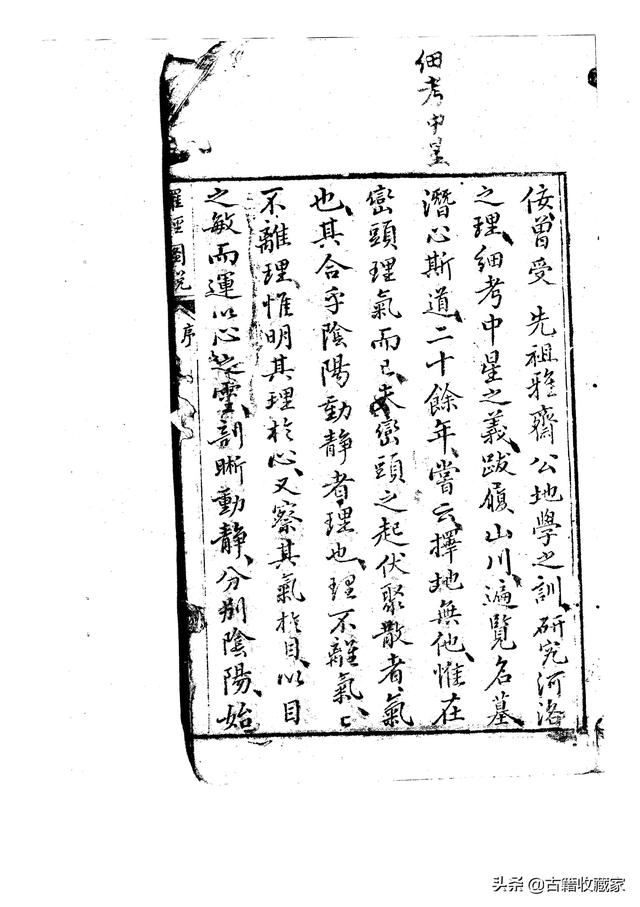 細考中星
侫曾受 先祖雅齋公地學之訓研究河洛
之理細考中星之義跋履山川遍覽名墓
潛心斯道二十餘年嘗云擇地無他惟在
巒頭理氣而已夫巒頭之起伏聚散者氣
也其合乎陰陽動靜者理也理不離氣氣
不離理惟明其理於心又察其氣於目以目
之敏而運以心之靈剖晰動靜分別陰陽始
羅經圖說 序
头条 @古籍收藏家